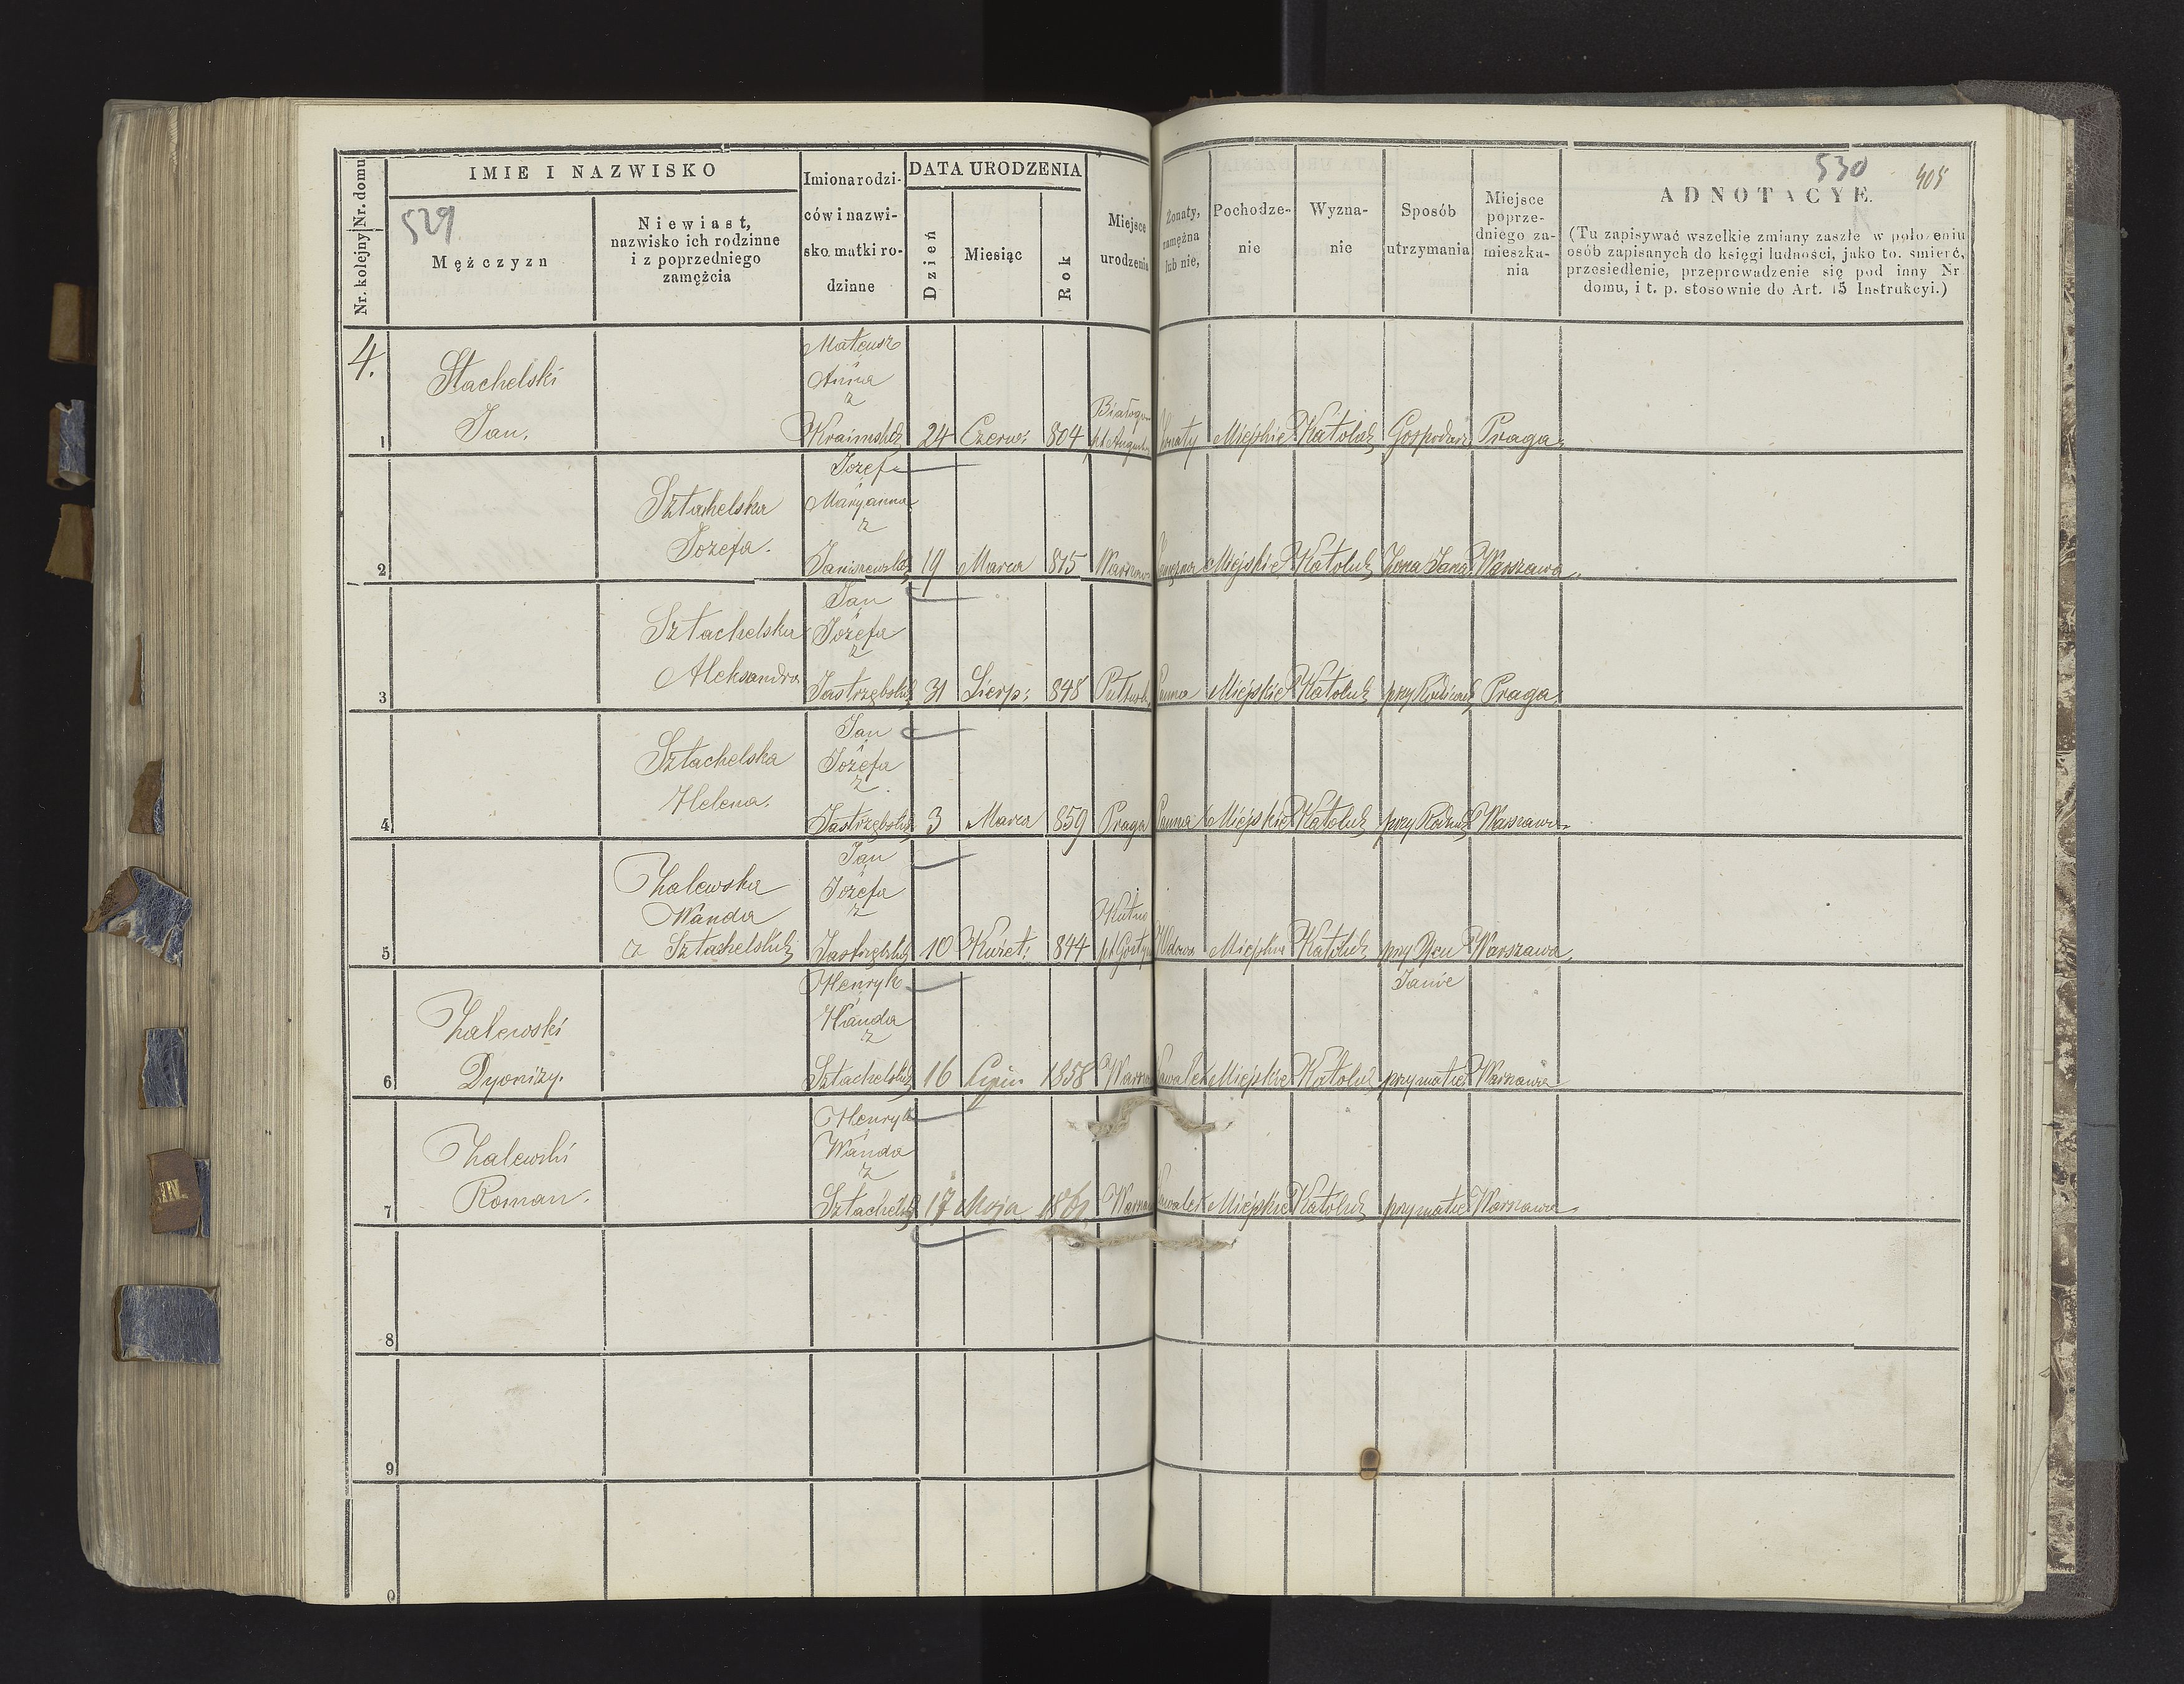 Nr. domu
Nr. kolejny
IMIE I NAZWISKO
529
Mężczyzn
Niewiast,
nazwisko ich rodzinne
i z poprzedniego
zamężcia
Imiona rodzi-
ców i nazwi-
sko matki ro-
dzinne
DATA URODZENIA
Dzień
Miesiąc
Rok
Miejsce
urodzenia
Żonaty,
zamężna
lub nie,
Pochodze-
nie
Wyzna-
nie
Sposób
utrzymania
Miejsce
poprze-
dniego za-
mieszka-
nia
530
405
ADNOTACYE.
(Tu zapisywać wszelkie zmiany zaszłe w położeniu
osób zapisanych do księgi ludności, jako to. śmierć,
przesiedlenie, przeprowadzenie się pod inny Nr
domu, i t. p. stosownie do Art. 15 Instrukcyi.)
4.
1
Stachelski
Jan.
Mateusz
i
Anna
z
24 Czerw: 804
Żonaty Miejskie Katolick Gospodarz Praga
2
Sztachelska
Jozefa.
Jozef
i
Maryanna
z
Janiszewskich 19 Marca 815 Warszawa
Zamężna Miejskie Katolick Żona Jana Warszawa
3
Sztachelska
Aleksandra
Jan
i
Jozefa
z
Jastrzębskich 31 Sierp: 848 Pułtusk
Panna Miejskie Katolick przy Rodzicach Praga
4
Sztachelska
Helena.
Jan
i
Jozefa
z
Jastrzębskich 3 Marca 859 Praga
Panna Miejskie Katolick przy Rodzic Warszawa
5
Zalewska
Wanda
z Sztachelskich
Jan
i
Jozefa
z
Jastrzębskich 10 Kwiet: 844
Kutno
pt Gostyn
Wdowa Miejskie Katolick przy Ojcu Warszawa
Janie
6
Zalewski
Dyonizy.
Henryk
i
Wanda
z
Sztachelskich 16 Lipca 1858 Warsza
Kawaler Miejskie Katolick przy matce Warszawa
7
Zalewski
Roman.
Henryk
i
Wanda
z
Sztachelskich 17 Maja 1861. Warszawa
Kawaler Miejskie Katolick przy matce Warszawa
8
9
0